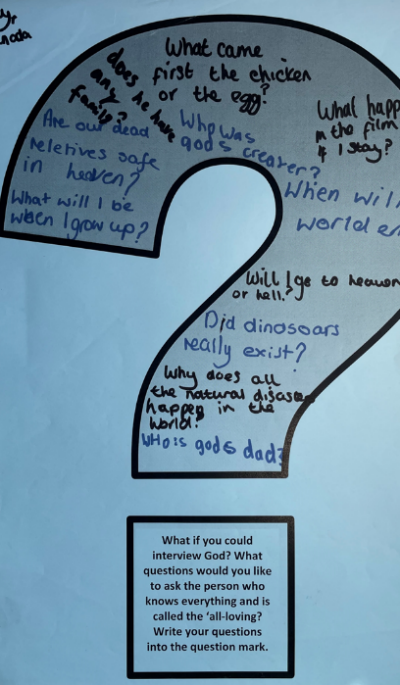 What came
first the chicken
or the egg?
does he have
any
family?
What happ
in the film
if I stay?
Are our dead
reletives safe
in heaven?
Who was
gods creater?
When will
world en
What will I be
when I grow up?
Will I go to heaven
or hell?
Did dinosoars
really exist?
Why does all
the natural disaster
happen in the
world?
Who is gods dad?
What if you could
interview God? What
questions would you like
to ask the person who
knows everything and is
called the ‘all-loving?
Write your questions
into the question mark.